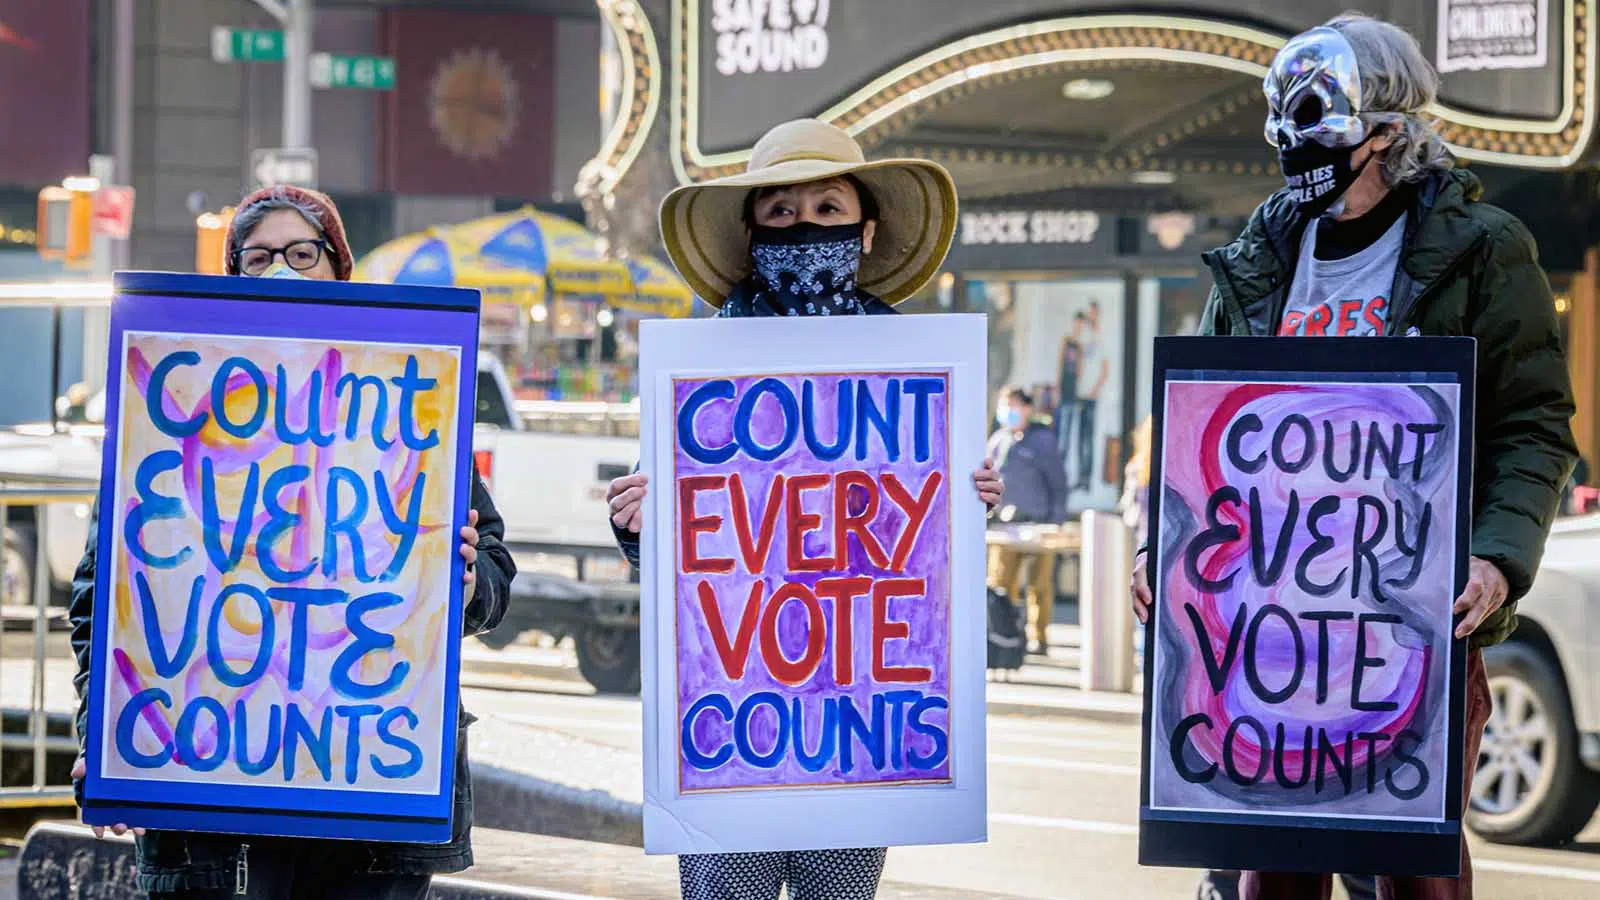 SAFE
SOUND
CHILDREN'S
7 Av
W 43 St
ROCK SHOP
LIES
DIE
Count
EVERY
VOTE
COUNTS
COUNT
EVERY
VOTE
COUNTS
COUNT
EVERY
VOTE
COUNTS